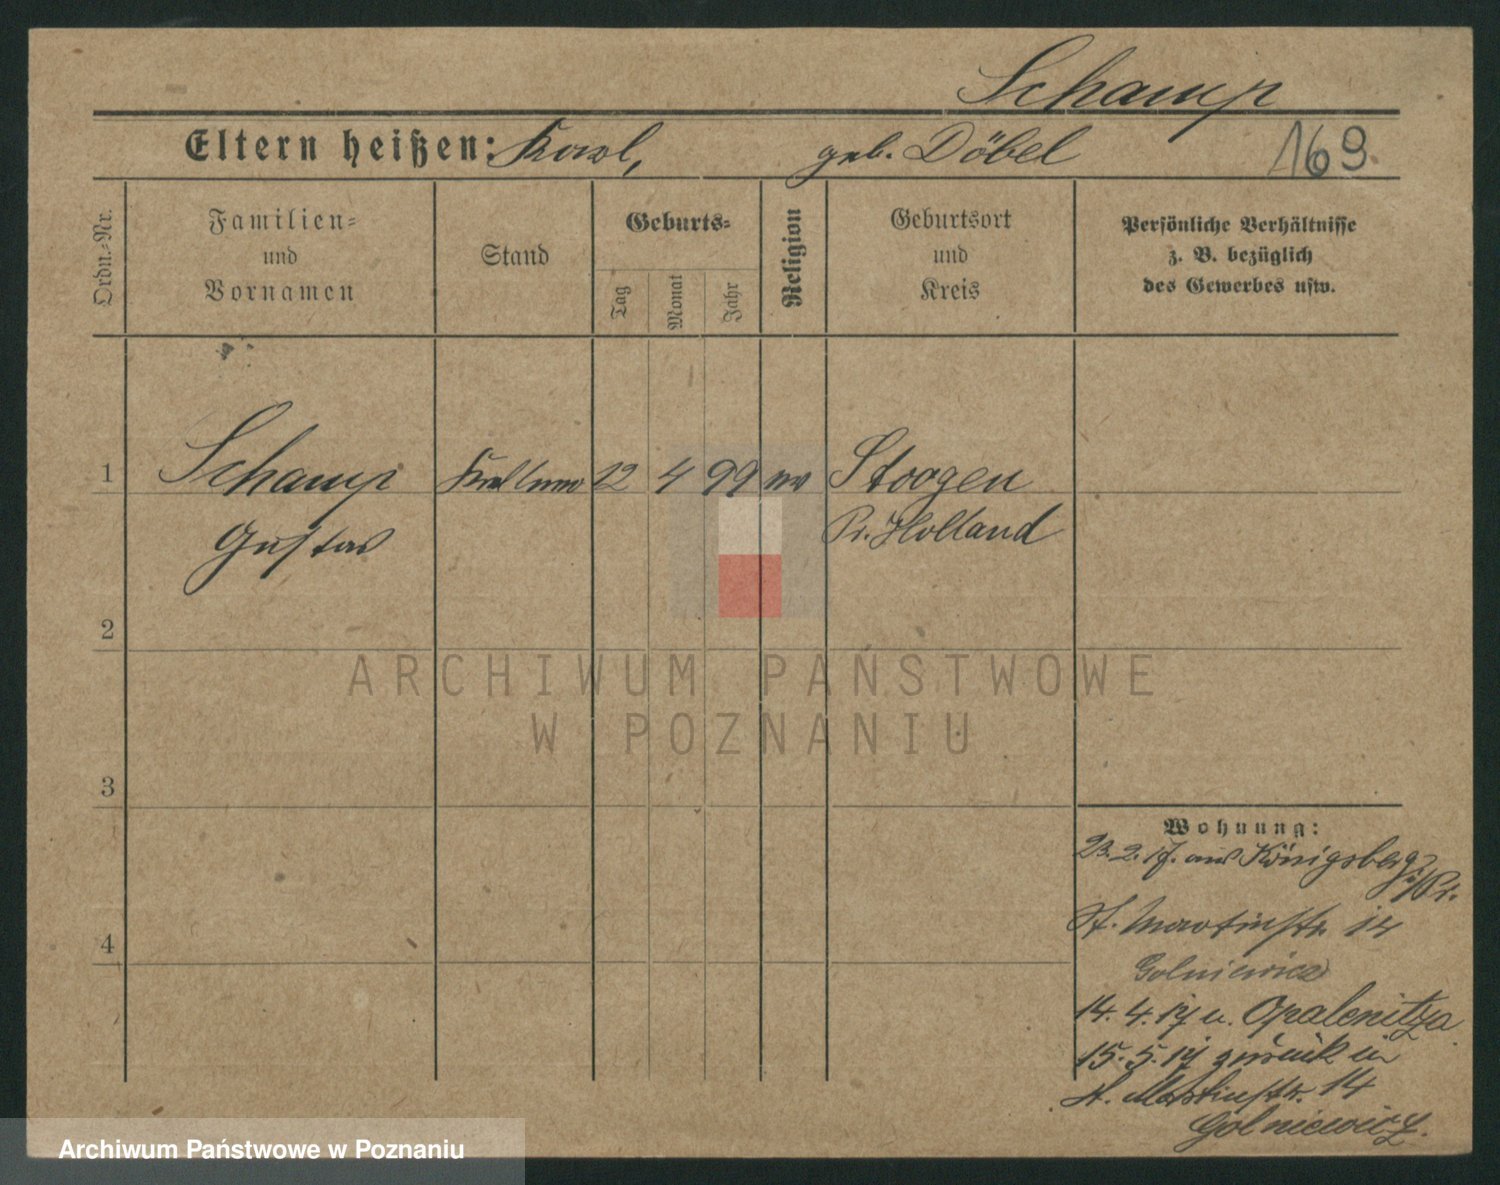 Schamp
Eltern heißen: Karl, geb. Döbel
169.
Ordn.-Nr.
Familien-
und
Vornamen
Stand
Geburts-
Tag
Monat
Jahr
Religion
Geburtsort
und
Kreis
Persönliche Verhältnisse
z. B. bezüglich
des Gewerbes usw.
1 Schamp 12 4 99 ev Stoogen
Gustav Pr. Holland
2
ARCHIWUM PAŃSTWOWE
W POZNANIU
3
Wohnung:
23.2.17. aus Königsberg
i/Pr.
4
St. Martinstr. 14
Golniewicz
14.4.17 n. Opalenitza
15.5.17 zurück in
St. Martinstr. 14
Golniewicz.
Archiwum Państwowe w Poznaniu